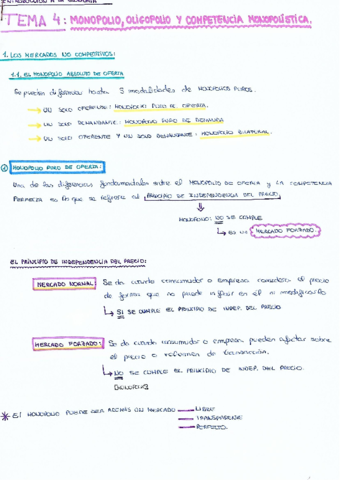 INTRODUCCIÓN A LA ECONOMÍA
TEMA 4: MONOPOLIO, OLIGOPOLIO Y COMPETENCIA MONOPOLÍSTICA.
1. LOS MERCADOS NO COMPETITIVOS:
1.1. EL MONOPOLIO ABSOLUTO DE OFERTA
Se pueden diferenciar hasta 3 modalidades de MONOPOLIOS PUROS.
UN SOLO OFERENTE: MONOPOLIO PURO DE OFERTA.
UN SOLO DEMANDANTE: MONOPOLIO PURO DE DEMANDA
UN SOLO OFERENTE Y UN SOLO DEMANDANTE: MONOPOLIO BILATERAL.
MONOPOLIO PURO DE OFERTA:
Una de las diferencias fundamentales entre el MONOPOLIO DE OFERTA y LA COMPETENCIA
PERFECTA es en lo que se refiere al PRINCIPIO DE INDEPENDENCIA DEL PRECIO.
MONOPOLIO: NO SE CUMPLE
ES UN MERCADO FORZADO.
EL PRINCIPIO DE INDEPENDENCIA DEL PRECIO:
MERCADO NORMAL: Se da cuando consumidor o empresa el precio
de forma que no puede influir en él ni modificarlo
SI SE CUMPLE EL PRINCIPIO DE INDEP. DEL PRECIO
MERCADO FORZADO: Se da cuando consumidor o empresa pueden afectar sobre
el precio o volumen de transacción.
NO SE CUMPLE EL PRINCIPIO DE INDEP. DEL PRECIO.
* El MONOPOLIO PUEDE SER ADEMÁS UN MERCADO LIBRE
TRANSPARENTE
PERFECTO.